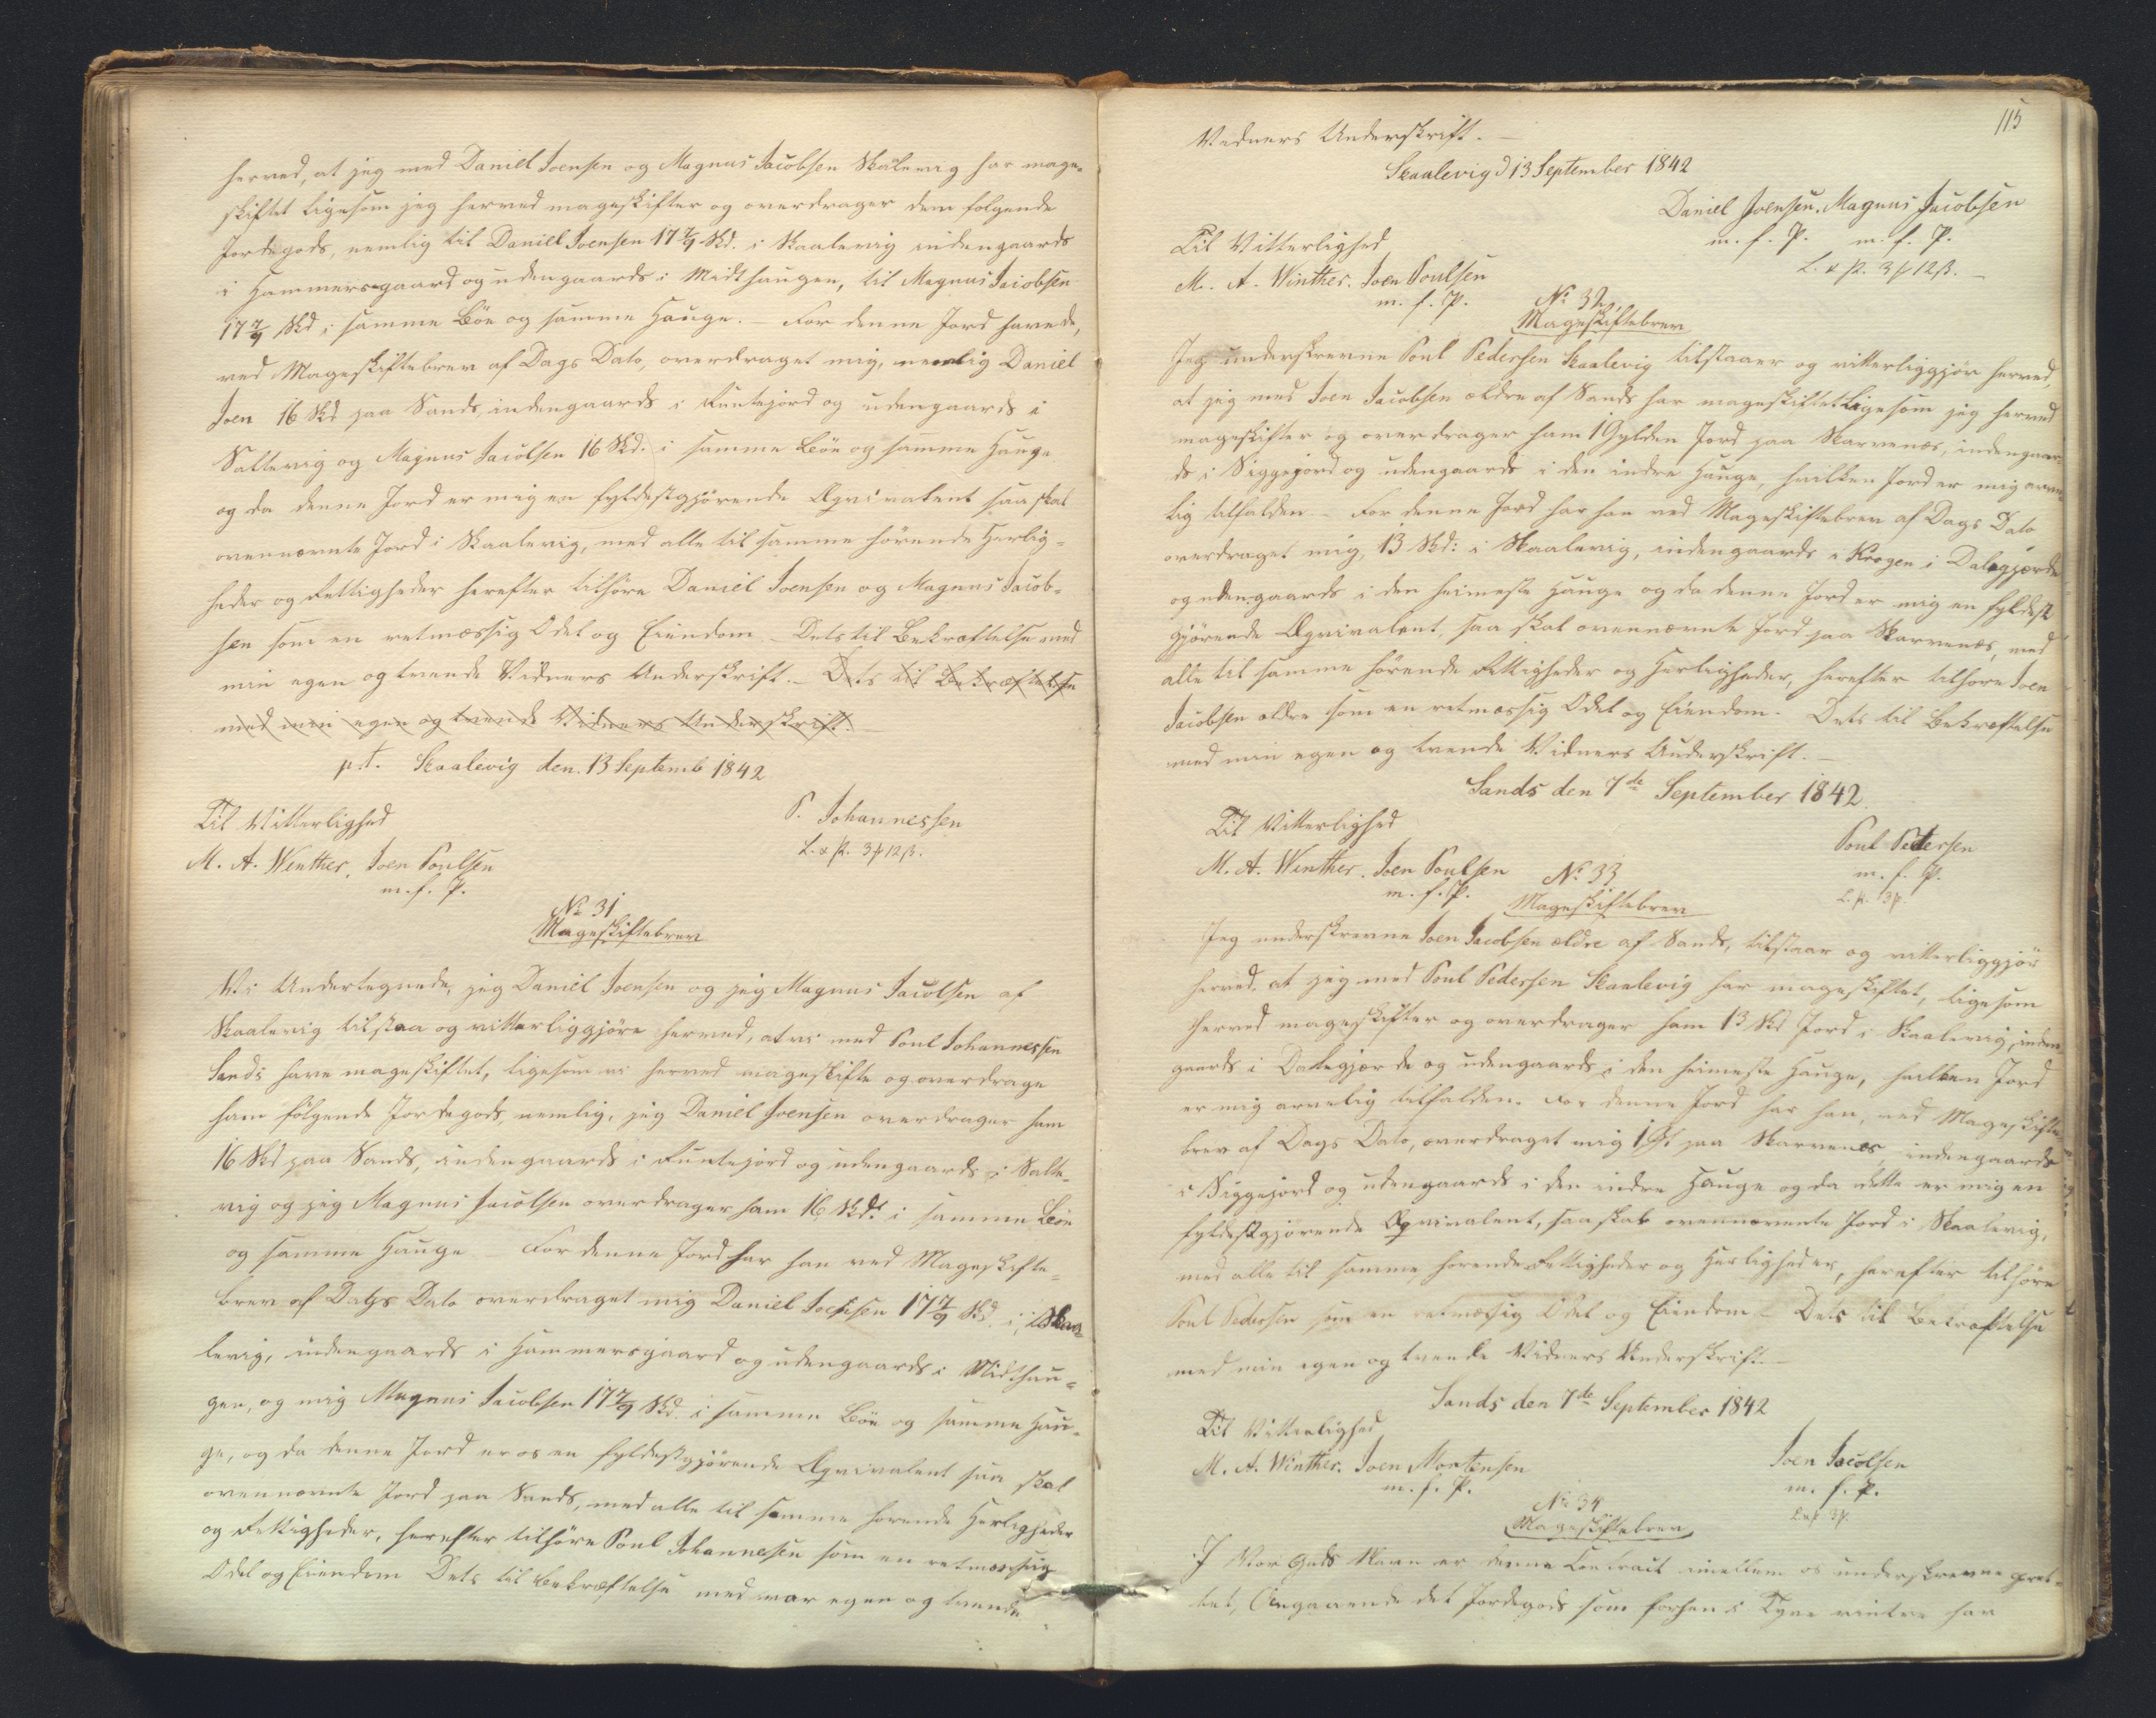 herved, at jeg med Daniel Joensen og Magnus Jacobsen Skålevig har mage-
skiftet ligesom jeg herved mageskifter og overdrager dem følgende
Jordegods, nemlig til Daniel Joensen 17 7/9 Skd. i Skaalevig indengaards
i Hammersgaard og udengaards i Midthaugen, til Magnus Jacobsen
17 7/9 Skd i samme Böe og samme Hauge. For denne Jord have de,
ved Mageskiftebrev af Dags Dato, overdraget mig, nemlig Daniel
Joen 16 Skd paa Sands, indengaards i Runtejord og udengaards i
Saltevig og Magnus Jacobsen 16 Skd. i samme Böe og samme Hauge
og da denne Jord er mig en fyldestgjørende Æqvivalent saa skal
ovennævnte Jord i Skaalevig, med alle til samme hörende Herlig-
heder og Rettigheder herefter tilhöre Daniel Joensen og Magnus Jacob-
sen som en retmæssig Odel og Eiendom. Dets til Bekræftelse med
min egen og tvende Vidners Underskrift. Dets til Bekræftelse
med min egen og tvende Vidners Underskrift.
p.t. Skaalevig den. 13 Septemb 1842
Til Vitterlighed
P. Johannessen
L. & P. 3 ƒ 12 ß.
M. A. Winther, Joen Poulsen
m. f. P.
No 31
Mageskiftebrev
Vi Undertegnede, jeg Daniel Joensen og jeg Magnus Jacobsen af
Skaalevig tilstaa og vitterliggjöre herved, at vi med Poul Johannessen
Sands have mageskiftet, ligesom vi herved mageskifte og overdrage
ham fölgende Jordegods, nemlig, jeg Daniel Joensen overdrager ham
16 Skd paa Sands, indengaards i Runtejord og udengaards i Salte-
vig og jeg Magnus Jacobsen overdrager ham 16 Skd. i samme Böe
og samme Hauge. For denne Jord har han ved Mageskifte-
brev af Dags Dato overdraget mig Daniel Joensen 17 7/9 Skd. i Skaa-
levig, indengaards i Hammersgaard og udengaards i Midthau-
gen, og mig Magnus Jacobsen 17 7/9 Skd. i samme Böe og samme Hau-
ge, og da denne Jord er os en fyldestgjörende Æqvivalent saa skal
ovennævnte Jord paa Sands, med alle til samme hørende Herligheder
og Rettigheder, herefter tilhöre Poul Johannesen som en retmæssig
Odel og Eiendom Dets til Bekræftelse med vor egen og tvende
115
Vidners Underskrift.
Skaalevig d 13 September 1842
Daniel Joensen. Magnus Jacobsen
m. f. P. m. f. P.
Til Vitterlighed
L. & P. 3 ƒ 12 ß.
M. A. Winther. Joen Poulsen
m. f. P.
No 32.
Mageskiftebrev
Jeg underskrevne Poul Pedersen Skaalevig tilstaaer og vitterliggjör herved,
at jeg med Joen Jacobsen ældre af Sands har mageskiftet ligesom jeg herved
mageskifter og overdrager ham 1 Gylden Jord paa Skarvenæs, indengaar-
ds i Siggejord og udengaards i den indre Hauge, hvilken Jord er mig arve-
lig tilfalden. For denne Jord har han ved Mageskiftebrev af Dags Dato
overdraget mig, 13 Skd: i Skaalevig, indengaards i Krogen i Dalegjærde
og udengaards i den heimeste Hauge og da denne Jord er mig en fyldest
gjörende Æqvivalent, saa skal ovennævnte Jord paa Skarvenæs, med
alle til samme hörende Rettigheder og Herligheder, herefter tilhöre Joen
Jacobsen ældre som en retmæssig Odel og Eiendom. Dets til Bekræftelse
med min egen og tvende Vidners Underskrift.
Sands den 7de September 1842.
Til Vitterlighed
Poul Pedersen
M. A. Winther. Joen Poulsen
m. f. P.
m. f. P.
L. P. 3ƒ.
No 33
Mageskiftebrev
Jeg underskrevne Joen Jacobsen ældre af Sands, tilstaar og vitterliggjör
herved, at jeg med Poul Pedersen Skaalevig har mageskiftet, ligesom
herved mageskifter og overdrager ham 13 Skd Jord i Skaalevig, inden-
gaards i Dalegjærde og udengaards i den heimeste Hauge, hvilken Jord
er mig arvelig tilfalden. For denne Jord har han, ved Mageskifte-
brev af Dags Dato, overdraget mig 1 Gl paa Skarvenæs, indengaards
i Siggejord og udengaards i den indre Hauge og da dette er mig en
fyldestgjörende Æqvivalent, saa skal ovennævnte Jord i Skaalevig,
med alle til samme hörende Rettigheder og Herligheder, herefter tilhöre
Poul Pedersen som en retmæssig Odel og Eiendom. Dets til Bekræftelse
med min egen og tvende Vidners Underskrift.
Sands den 7de September 1842
Til Vitterlighed
Joen Jacobsen
M. A. Winther. Joen Mortensen
m. f. P.
m. f. P.
L & P 3ƒ.
No 34
Mageskiftebrev
I Vor Guds Navn er denne Contract imellem os underskrevne
Angaaende det Jordegods som forhen i har